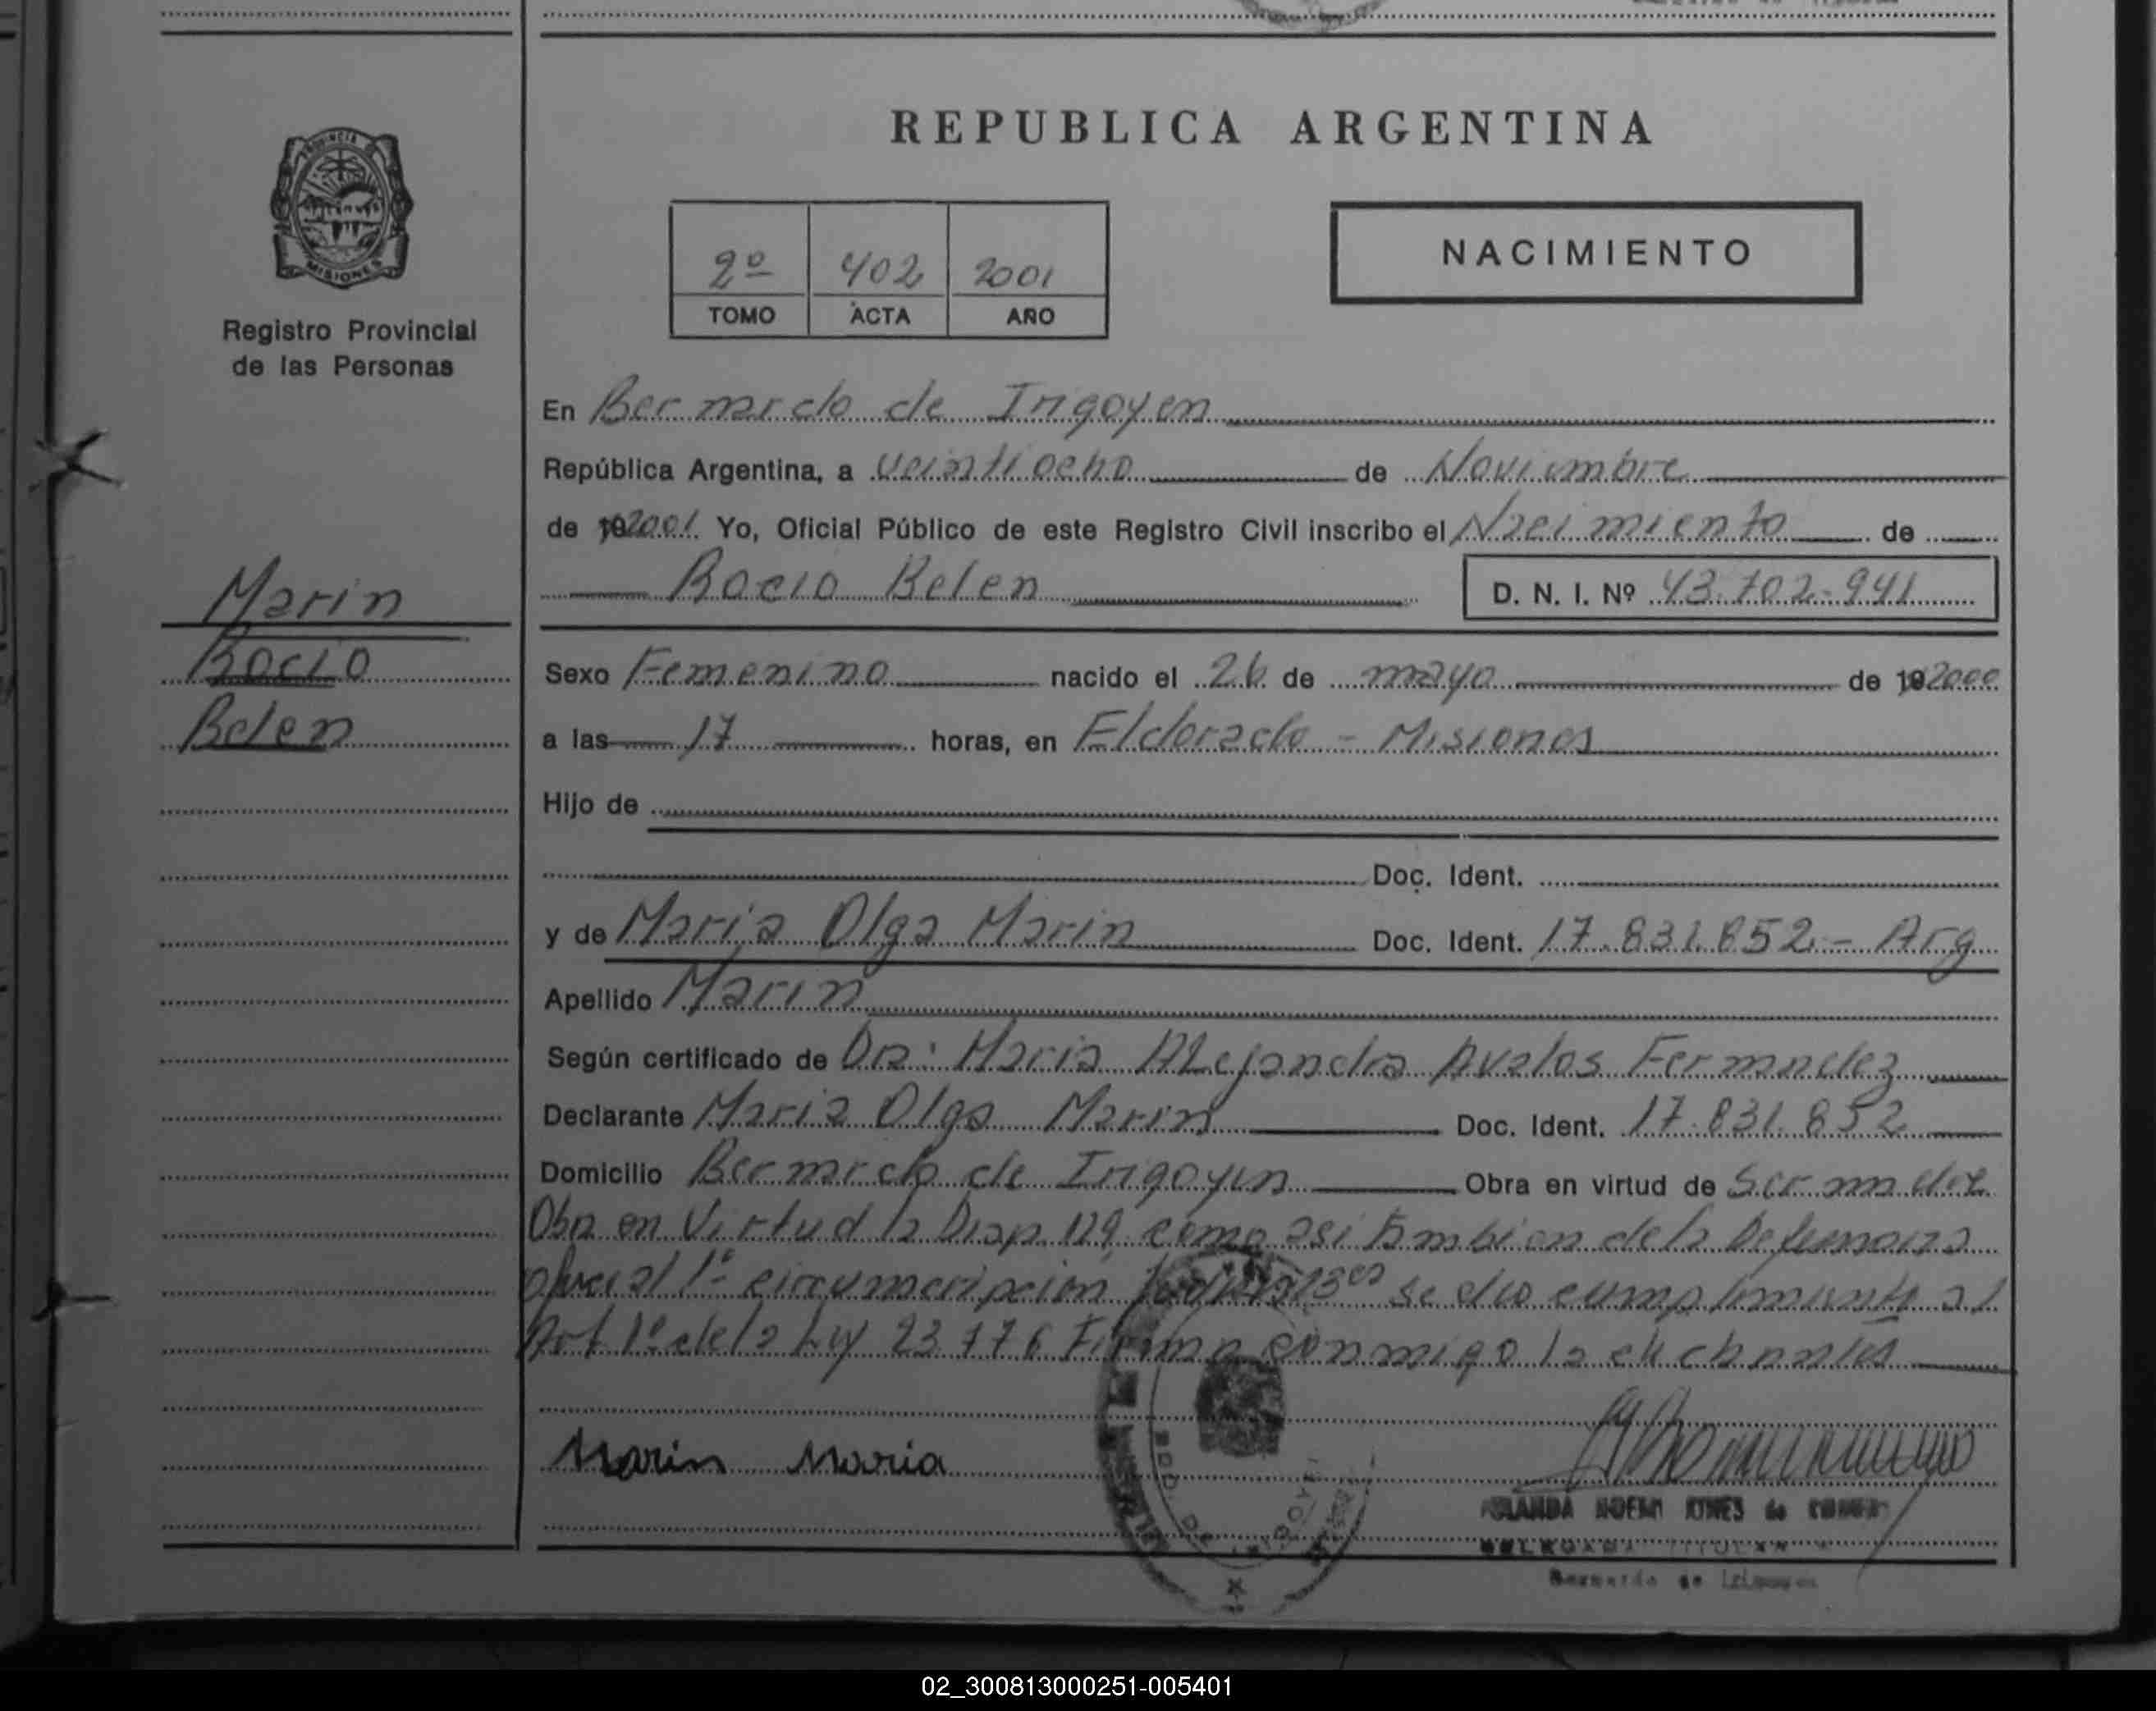 REPUBLICA ARGENTINA
PROVINCIA DE
MISIONES
Registro Provincial
de las Personas
2º 402 2001
TOMO ACTA AÑO
NACIMIENTO
En Bernardo de Irigoyen
República Argentina, a veintiocho de Noviembre
de 192001 Yo, Oficial Público de este Registro Civil inscribo el Nacimiento de
Rocio Belen D. N. I. Nº 43.702.941
Marin
Rocio
Belen
Sexo Femenino nacido el 26 de mayo de 192000
a las 17 horas, en Eldorado - Misiones
Hijo de
Doc. Ident.
y de Maria Olga Marin Doc. Ident. 17.831.852 - Arg
Apellido Marin
Según certificado de Dra: Maria Alejandra Avalos Fernandez
Declarante Maria Olga Marin Doc. Ident. 17.831.852
Domicilio Bernardo de Irigoyen Obra en virtud de Ser madre
Obra en Virtud la Disp. 129 como asi tambien de la Defensoria
oficial 1º circunscripcion se dio cumplimiento al
Art 1º de la Ley 23.776 Firma conmigo la
Marin Maria
NOEMI de
TITULAR
Bernardo de Irigoyen
02_300813000251-005401